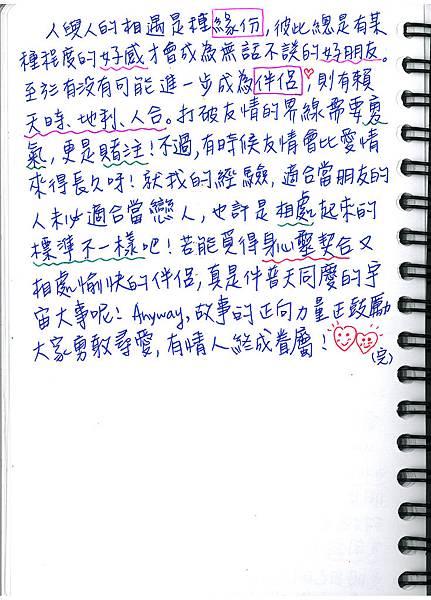 人與人的相遇是種緣份，彼此總是有某
種程度的好感才會成為無話不談的好朋友。
至於有沒有可能進一步成為伴侶，則有賴
天時、地利、人合。打破友情的界線需要勇
氣，更是賭注！不過，有時候友情會比愛情
來得長久呀！就我的經驗，適合當朋友的
人未必適合當戀人，也許是相處起來的
標準不一樣吧！若能覓得身心靈契合又
相處愉快的伴侶，真是件普天同慶的宇
宙大事呢！Anyway，故事的正向力量正鼓勵
大家勇敢尋愛，有情人終成眷屬！
(完)